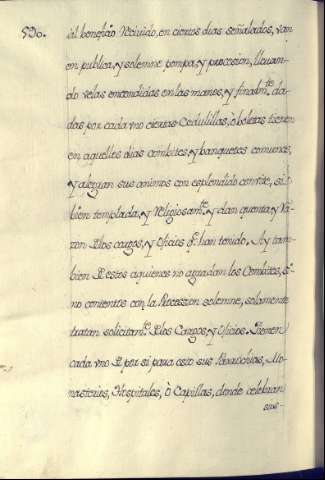 590.
al benefiçio Reciuido, en ciertos dias señalados, van
en publica, y solemne pompa, y procession, lleuan-
do velas encendidas en las manos, y finalm.te da-
das por cada vno ciertas Cedulillas, ò boletas tienen
en aquellos dias combites, y banquetes comunes,
y alegran sus animos con esplendido convite, si
bien templada, y Religiosam.te y dan quenta, y Ra-
zon D los cargos, y Oficios q.e han tenido. Ay tam-
bien D estos aquienes no agradan los Combites, q.e
no contentos con la Procession solemne, solamente
tratan solicitam.te D los Cargos, y Oficios. Tienen
cada vno D por si para esto sus Parrochias, Mo-
nasterios, Hospitales, ò Capillas, donde celebran
sus-